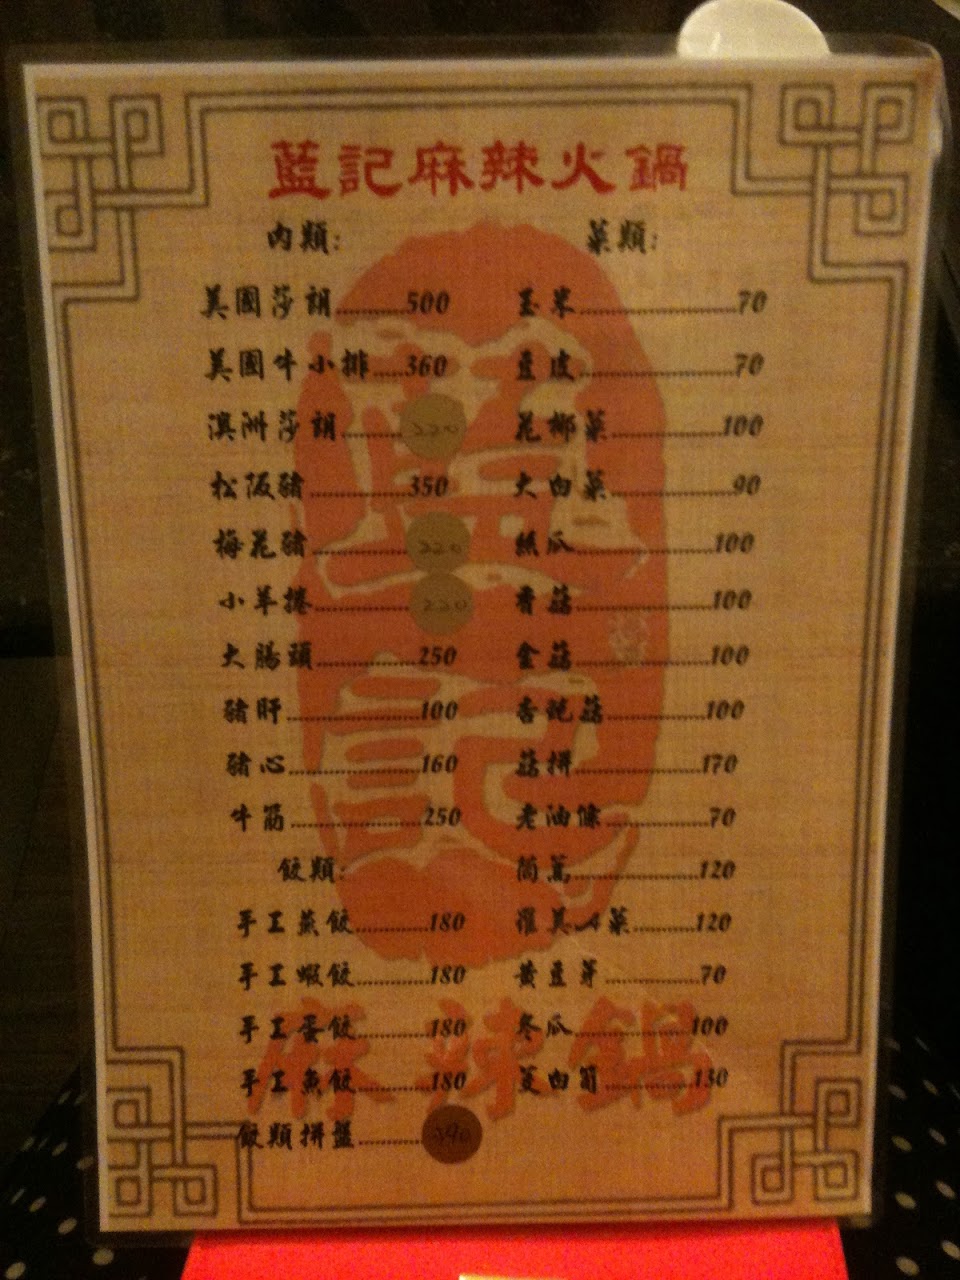 藍記麻辣火鍋
肉類:
美國莎朗..........500
美國牛小排.....360
澳洲莎朗.........220
松阪豬..............350
梅花豬..............220
小羊捲..............220
大腸頭...............250
豬肝....................100
豬心....................160
牛筋....................250
餃類:
手工燕餃...........180
手工蝦餃...........180
手工蛋餃...........180
手工魚餃...........180
餃類拼盤..........290
菜類:
玉米........................70
豆皮........................70
花椰菜.................100
大白菜...................90
絲瓜.....................100
香菇.....................100
金菇.....................100
杏鮑菇...............100
菇拼...................170
老油條................70
茼蒿...................120
蘿美A菜..........120
黃豆芽...............70
冬瓜..................100
茭白筍..............130
藍記
麻辣鍋